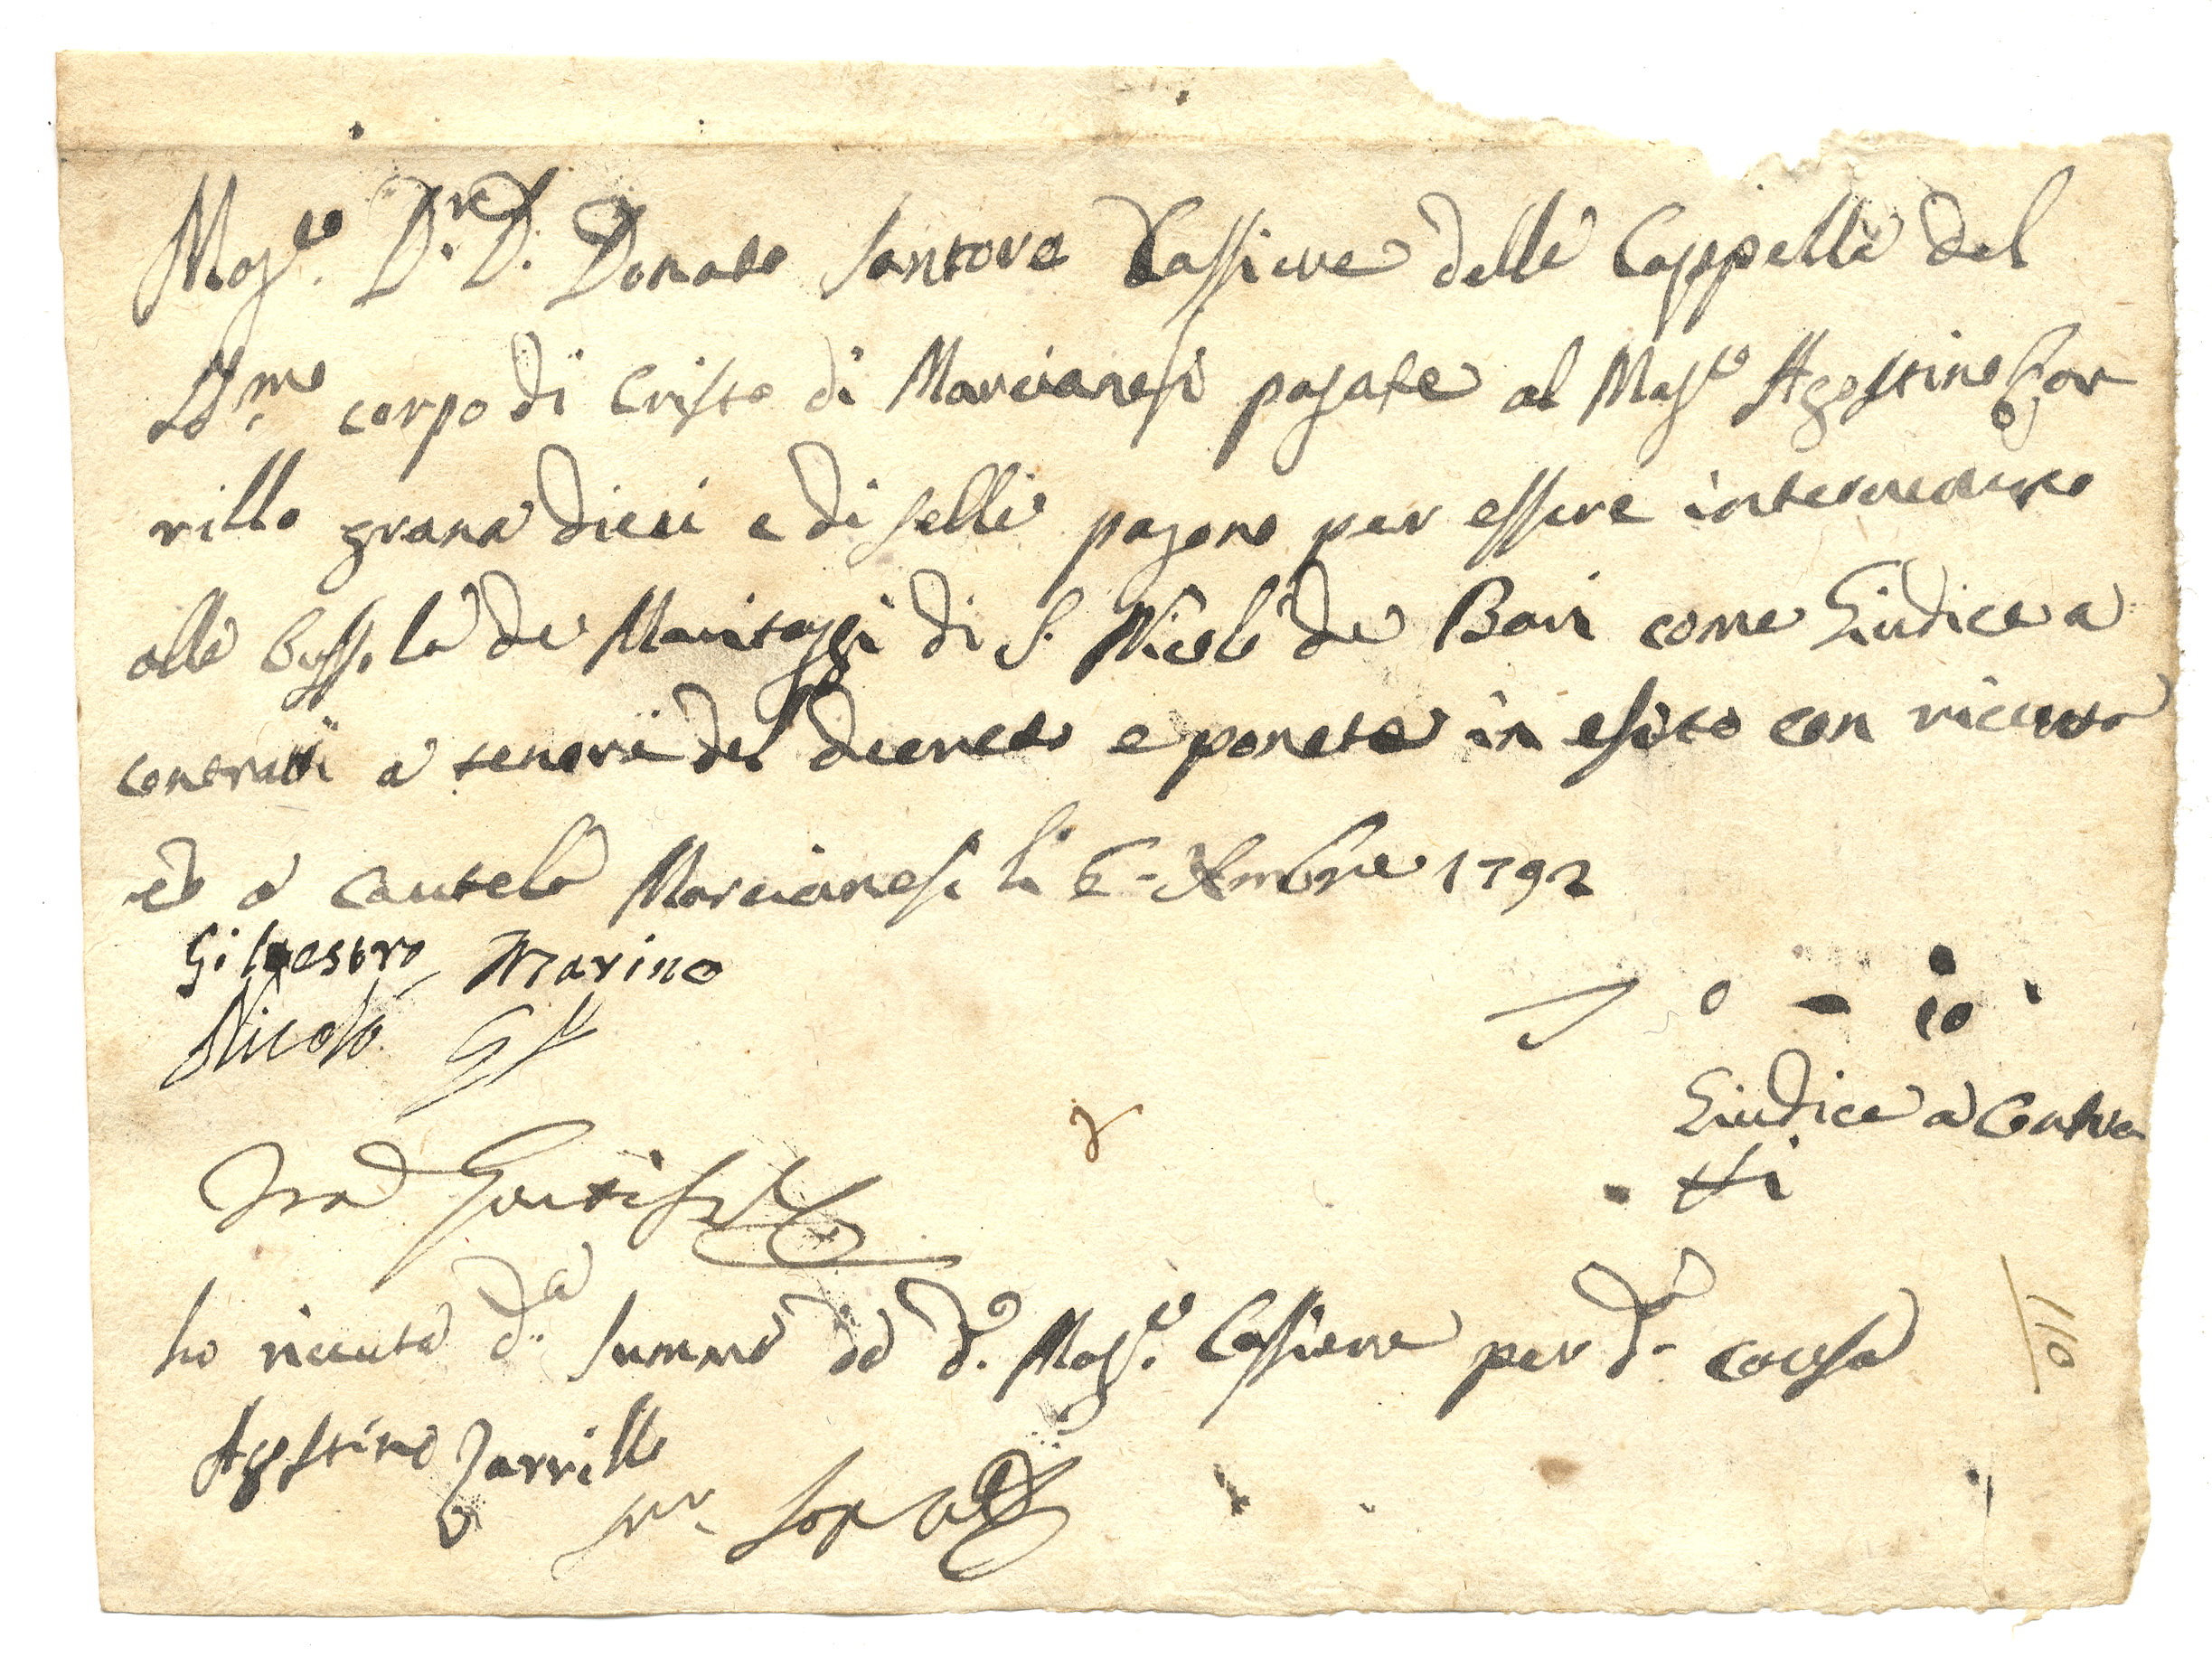 Mag.co D.r D. Donato Santoro Cassiere della Cappella del
SS.mo corpo di Cristo di Marcianesi pagate al Mag.co Agostino Zar
rillo grana dieci e di selli pagano per essere intervenuto
alla bussola de Maritaggi di S. Nicolò de Bari come Giudice a
contratti a tenore del decreto e ponete in esito con riceuta
et a cautela Marcianesi li 6 Xmbre 1792
Silvestro Marino
Nicolo
0 - 10
Giudice a Contra
tti
ho riceuta d.a summa da d.o Mag.co Cassiere per d.a causa
Agostino Zarrillo
110